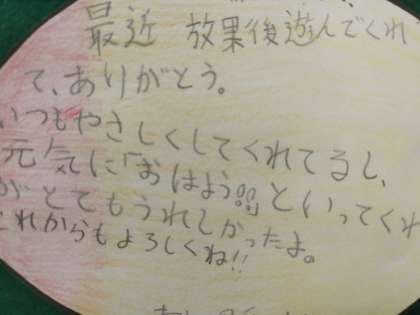 最近 放果後遊んでくれ
て、ありがとう。
いつもやさしくしてくれてるし、
元気に「おはよう!!」といってくれ
がとてもうれしかったよ。
これからもよろしくね!!